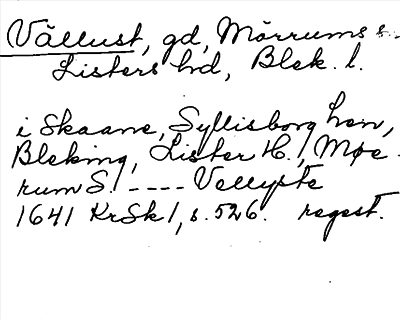 Vällust, gd, Mörrums s.
Listers hd, Blek. l.
i Skaane, Syllisborg Len,
Bleking, Lister H., Møe
rum S. ---- Vellyste
1641 KrSk 1, s. 526. regest.